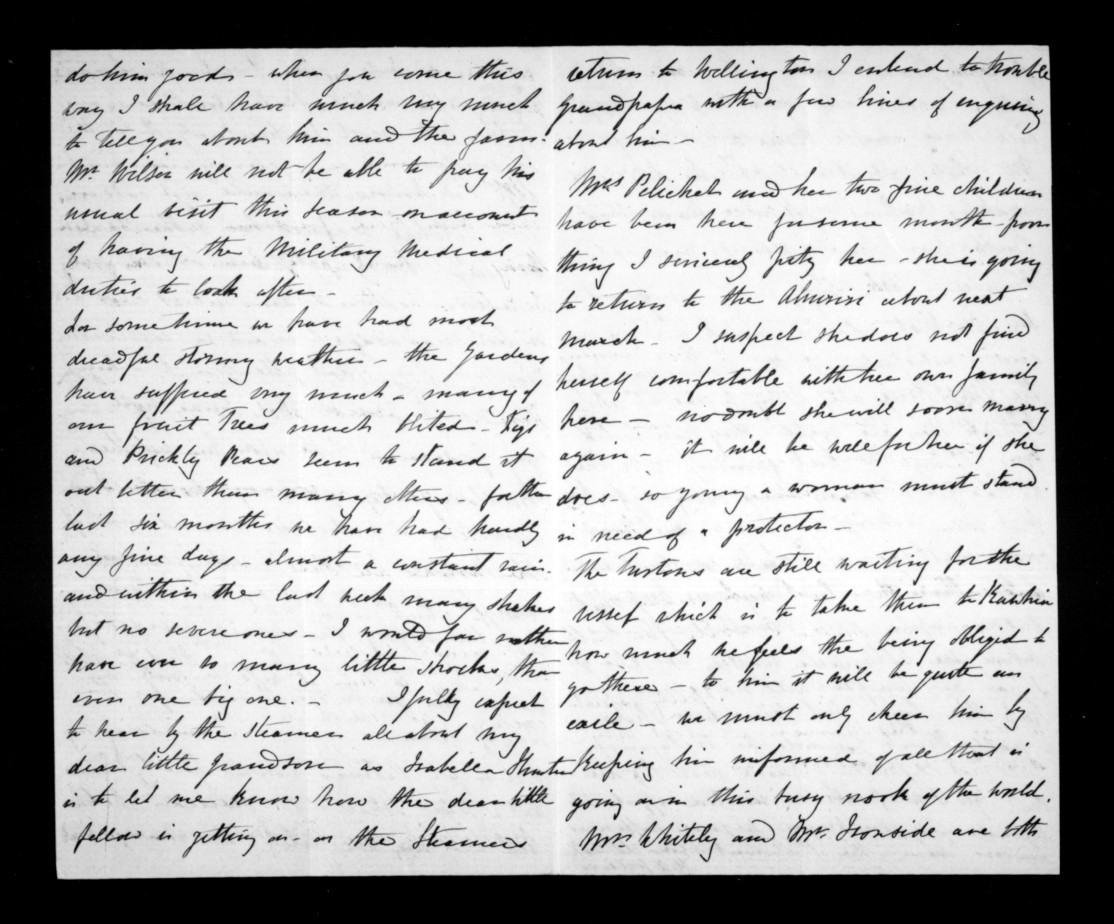 do him good - when you come this
way I shall have much very much
to tell you about him and the farm.
Mr. Wilson will not be able to pay his
usual visit this season on account
of having the Military Medical
duties to look after -
For sometime we have had most
dreadful stormy weather - the Gardens
have suffered very much - many of
our fruit Trees much blited - Figs
and Prickly Pears seem to stand it
out better than many others - for the
last six months we have had hardly
any fine days - almost a constant rain.
and within the last week many shakes
but no severe ones - I would far rather
have ever so many little shocks, than
even one big one. - I fully expect
to hear by the Steamer all about my
dear little Grandson as Isabella Hunter
is to let me know how the dear little
fellow is getting on - on the Steamers
return to Wellington I intend to trouble
Grandpapa with a few lines of enquiry
about him -
Mrs Pelichet and her two fine children
have been here for some month - poor
thing I sincerely pity her - she is going
to return to the Ahuriri about next
March - I suspect she does not find
herself comfortable with her own family
here - no doubt she will soon marry
again - it will be well for her if she
does - so young a woman must stand
in need of a protector -
The Turtons are still waiting for the
vessel which is to take them to Kawhia
how much he feels the being obliged to
go there - to him it will be quite an
exile - we must only cheer him by
keeping him informed of all that is
going on in this busy nook of the world.
Mrs. Whitely and Mrs. Ironside are both